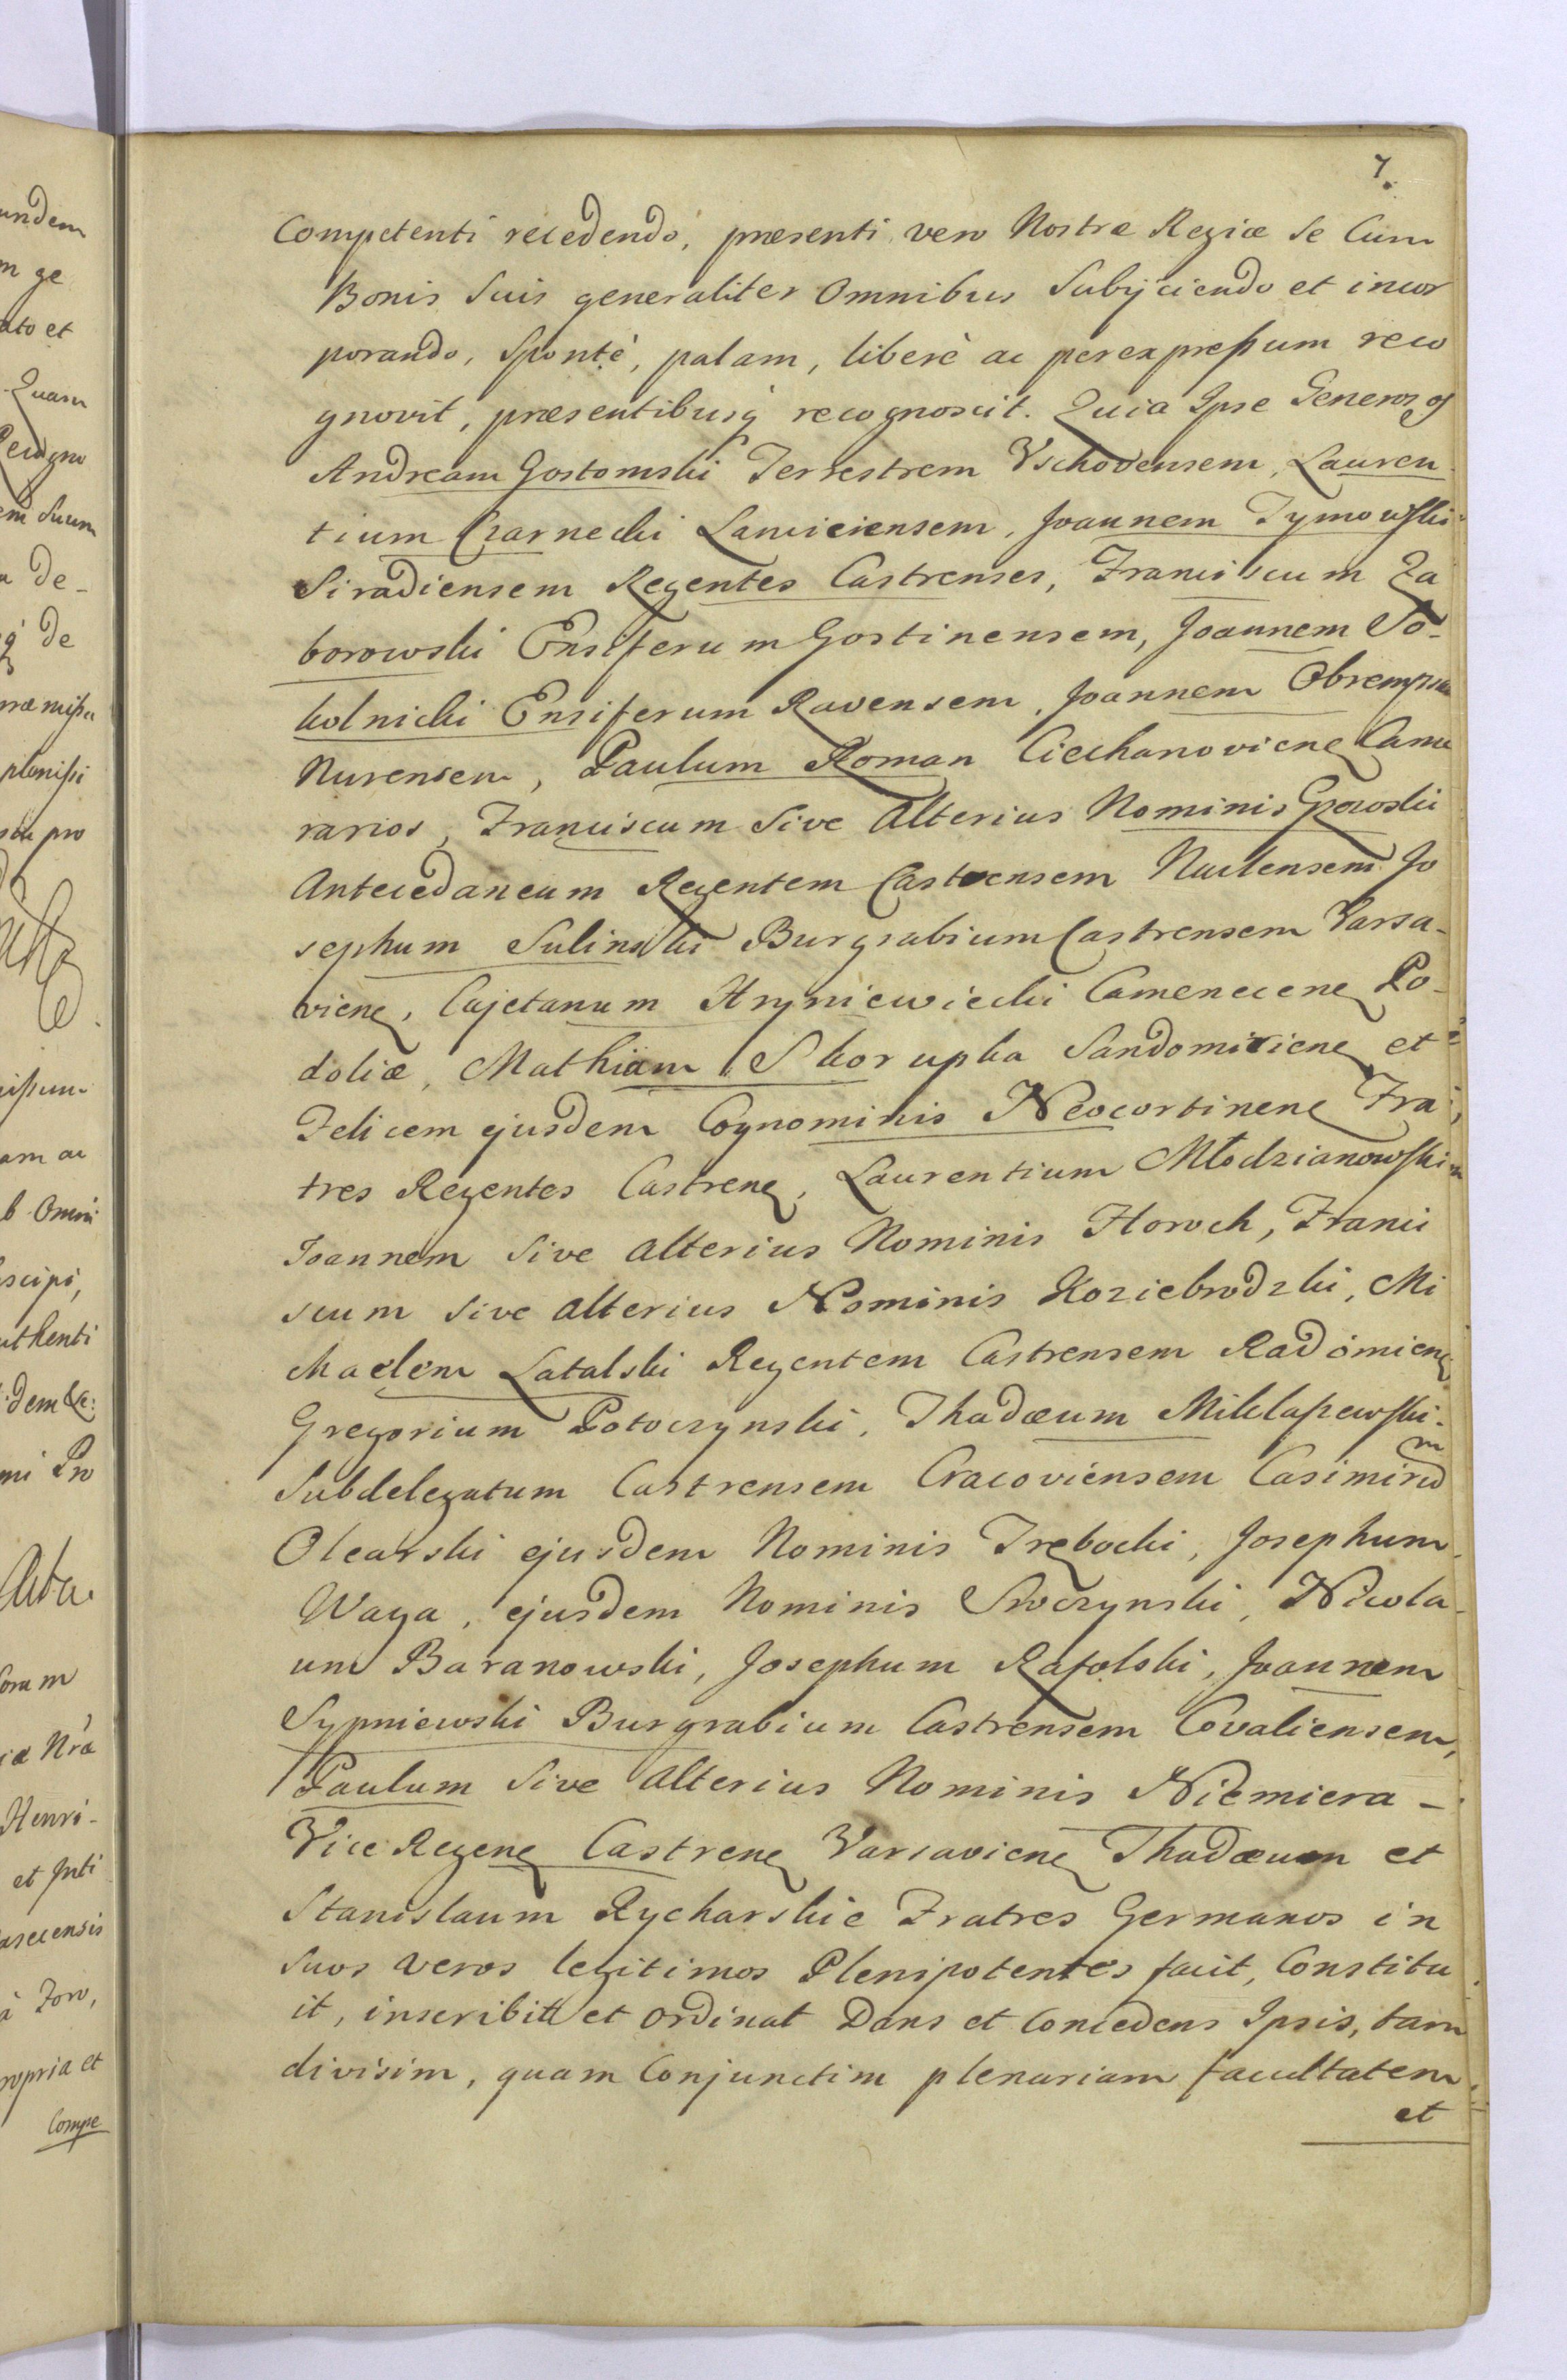 7.
Competenti recedendo, præsenti vero Nostræ Regiæ se Cum
Bonis Suis generaliter Omnibus Subijciendo et incor
porando, Spontè, palam, liberè ac per expreßum reco
gnovit, præsentibusq recognoscit. Quia Ipse Generos os
Andream Gostomski Terrestrem Vschovensem, Lauren
tium Czarnecki Lanciciensem, Joannem Tymowski
Siradiensem Regentes Castrenses, Franciscum Za
borowski Ensiferum Gostinensem, Joannem So-
kolnicki Ensiferum Ravensem, Joannem
Nurensem, Paulum Roman Ciechanoviene Came
rarios, Franciscum Sive Alterius Nominis
Antecedaneum Regentem Castrensem Naclensem Jo
sephum Sulinski Burgrabium Castrensem Varsa-
viene, Cajetanum Hryniewiecki Camenecene Po-
doliæ, Mathiam Skorupka Sandomiriene et
Felicem ejusdem Cognominis Neocortinene Fra
tres Regentes Castrene, Laurentium Młodzianowski
Joannem Sive alterius Nominis Horoch, Franci
scum sive alterius Nominis Koziebrodzki, Mi
chaelem Latalski Regentem Castrensem Radomiene
Gregorium Potoczynski, Thadæum Miklaszewski
Subdelegatum Castrensem Cracoviensem Casimirum
Olearski ejusdem Nominis Trębocki, Josephum
Waga, ejusdem Nominis Sroczynski, Nicola-
um Baranowski, Josephum Rafolski, Joannem
Sypniewski Burgrabium Castrensem Covaliensem,
Paulum Sive alterius Nominis Niemiera -
Vice Regene Castrene Varsaviene Thadæum et
Stanislaum Rycharskie Fratres Germanos in
Suos veros legitimos Plenipotentes facit, Constitu
it, inscribit et ordinat Dans et Concedens Ipsis, tam
divisim, quam Conjunctim plenariam facultatem
et